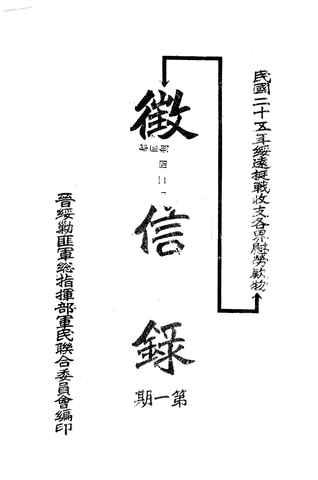 民國二十五年綏遠戰收支各界慰勞款物
徵信錄
第一期
晉綏勦匪軍總指揮部軍民聯合委員會編印